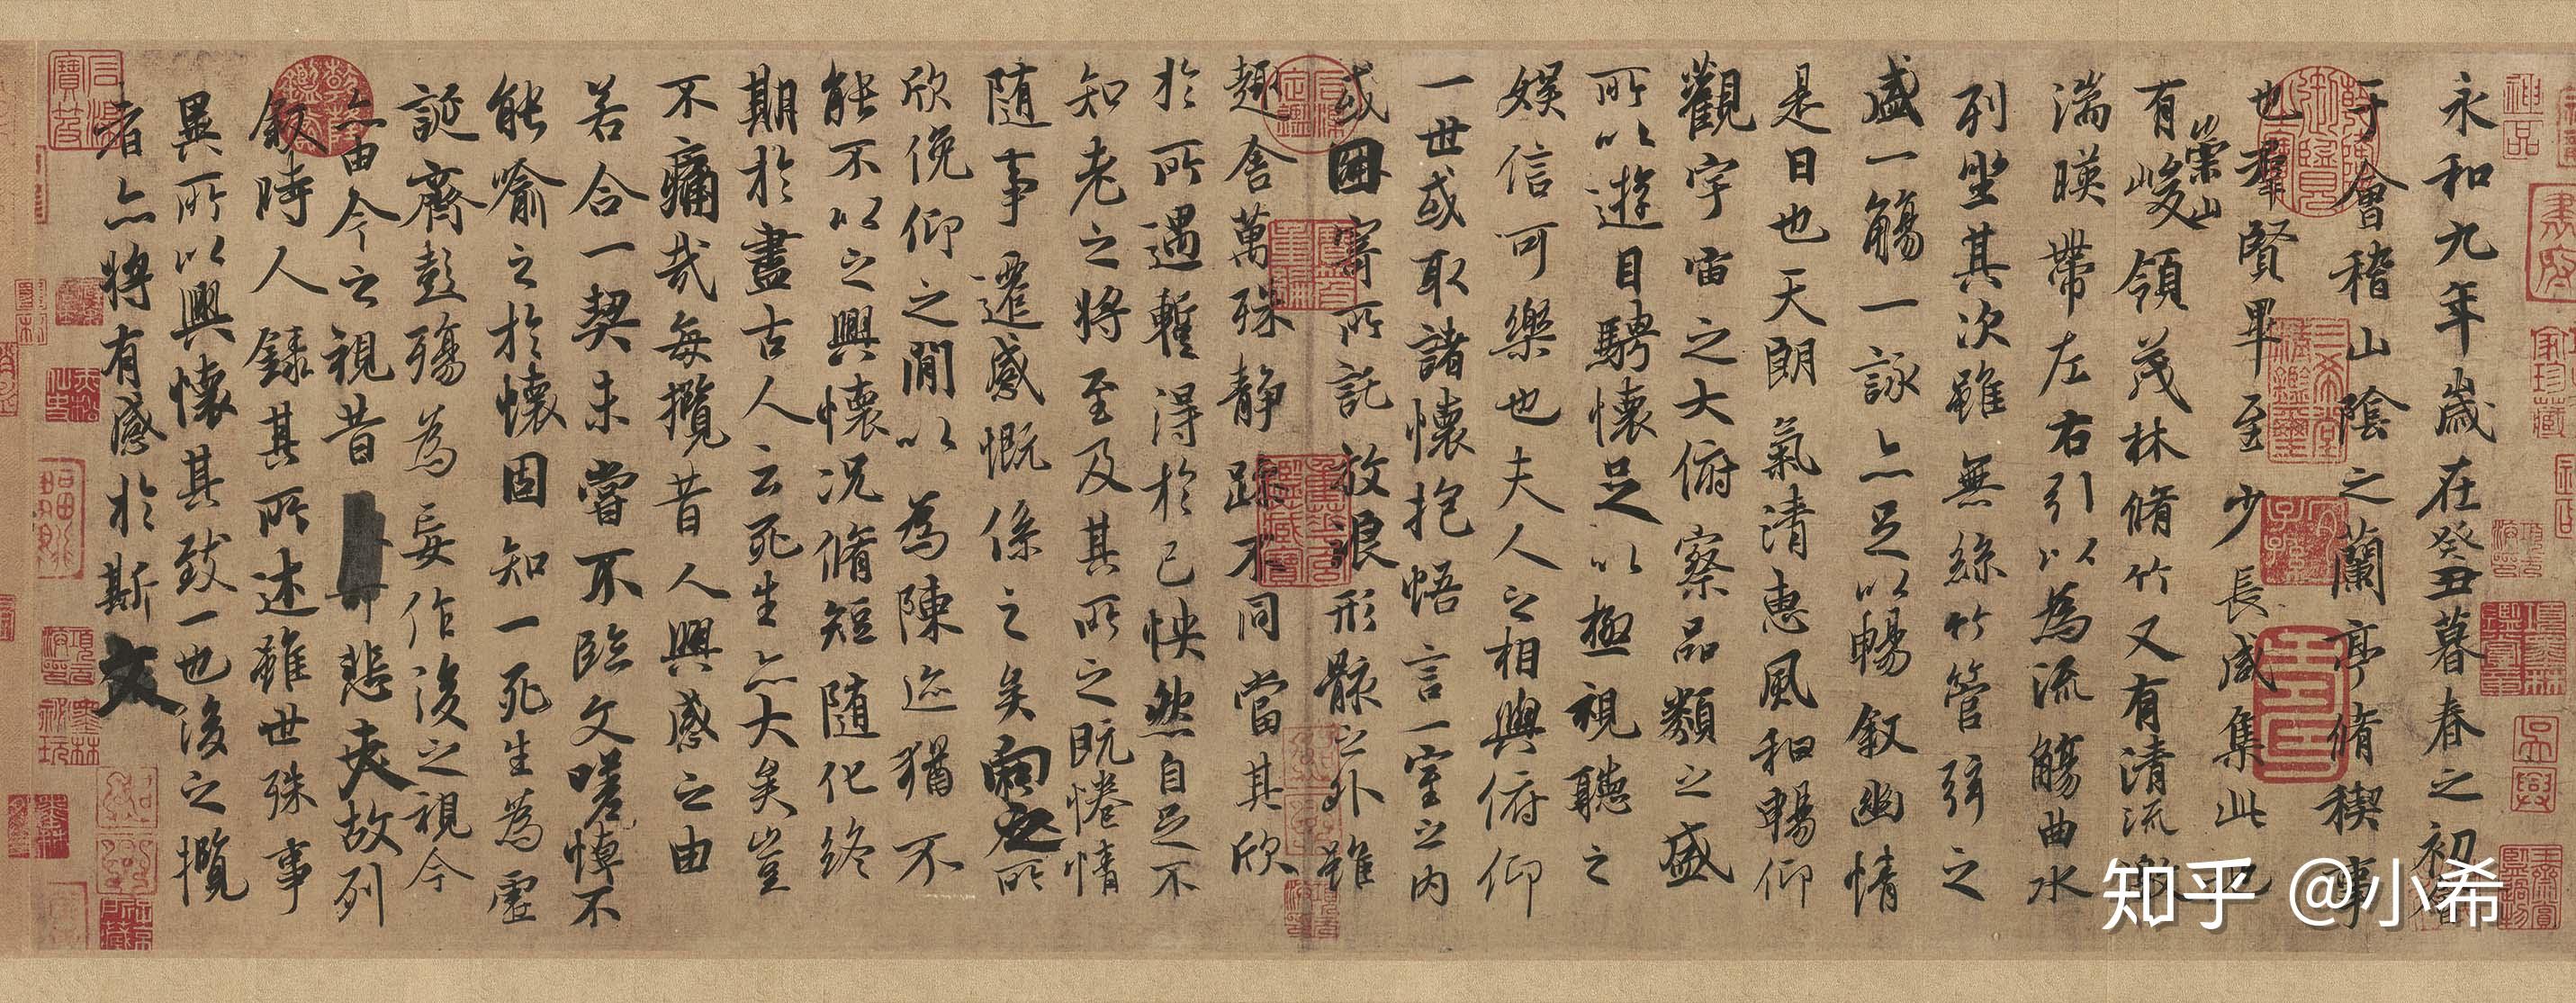 永和九年歲在癸丑暮春之初會
于會稽山陰之蘭亭脩稧事
也羣賢畢至少長咸集此地
有崇山峻領茂林脩竹又有清流激
湍暎帶左右引以為流觴曲水
列坐其次雖無絲竹管弦之
盛一觴一詠亦足以暢叙幽情
是日也天朗氣清惠風和暢仰
觀宇宙之大俯察品類之盛
所以遊目騁懷足以極視聽之
娛信可樂也夫人之相與俯仰
一世或取諸懷抱悟言一室之內
或因寄所託放浪形骸之外雖
趣舍萬殊静躁不同當其欣
於所遇暫得於己怏然自足不
知老之將至及其所之既惓情
随事遷感慨係之矣向之所
欣俛仰之閒以為陳迹猶不
能不以之興懷況脩短随化終
期於盡古人云死生亦大矣豈
不痛哉每攬昔人興感之由
若合一契未嘗不臨文嗟悼不
能喻之於懷固知一死生為虛
誕齊彭殤為妄作後之視今
亦由今之視昔悲夫故列
叙時人錄其所述雖世殊事
異所以興懷其致一也後之攬
者亦將有感於斯文
知乎 @小希